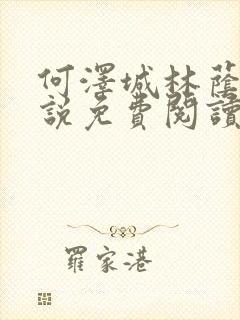 何澤城林蔭
說免費閱讀
羅家港